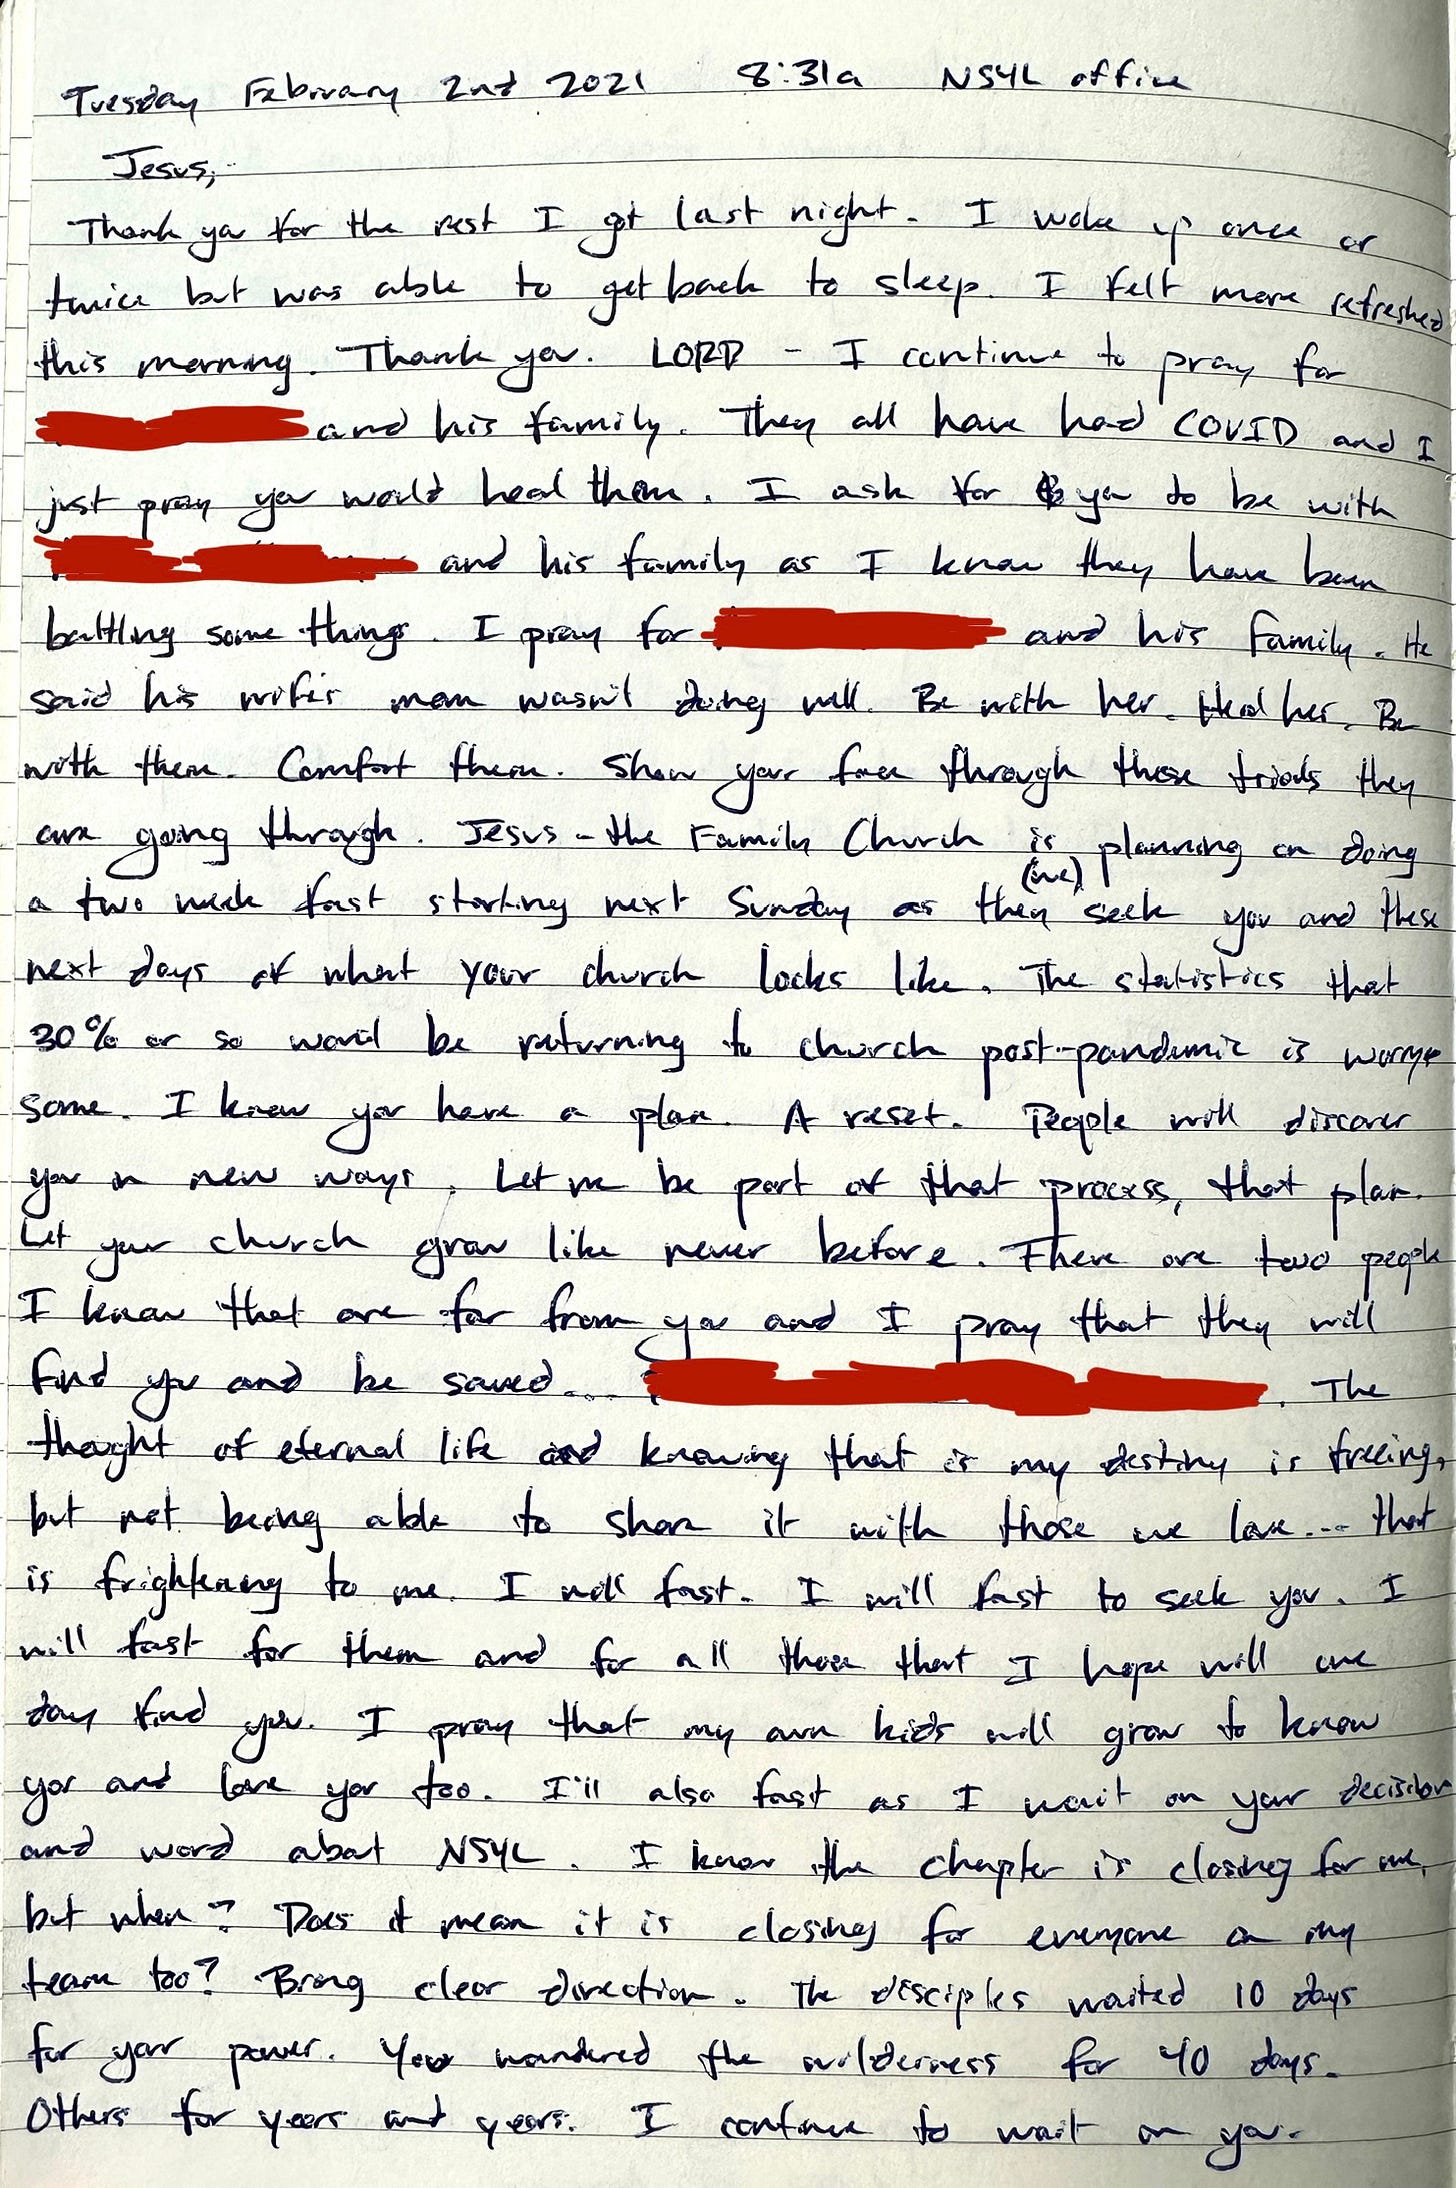 Tuesday February 2nd 2021 8:31a NSYL office
Jesus,
Thank you for the rest I got last night. I woke up once or
twice but was able to get back to sleep. I felt more refreshed
this morning. Thank you. LORD - I continue to pray for
and his family. They all have had COVID and I
just pray you would heal them. I ask for you to be with
and his family as I know they have been
battling some things. I pray for and his family. He
said his wife's mom wasn't doing well. Be with her. Heal her. Be
with them. Comfort them. Show your face through these trials they
are going through. Jesus - the Family Church is planning on doing
(we)
a two week fast starting next Sunday as they seek you and these
next days of what your church looks like. The statistics that
30% or so would be returning to church post-pandemic is worry
some. I know you have a plan. A reset. People will discover
you in new ways. Let me be part of that process, that plan.
Let your church grow like never before. There are two people
I know that are far from you and I pray that they will
find you and be saved... . The
thought of eternal life and knowing that is my destiny is freeing,
but not being able to share it with those we love... that
is frightening to me. I will fast. I will fast to seek you. I
will fast for them and for all those that I hope will one
day find you. I pray that my own kids will grow to know
you and love you too. I'll also fast as I wait on your decision
and word about NSYL. I know the chapter is closing for me,
but when? Does it mean it is closing for everyone on my
team too? Bring clear direction. The disciples waited 10 days
for your power. You wandered the wilderness for 40 days.
Others for years and years. I continue to wait on you.